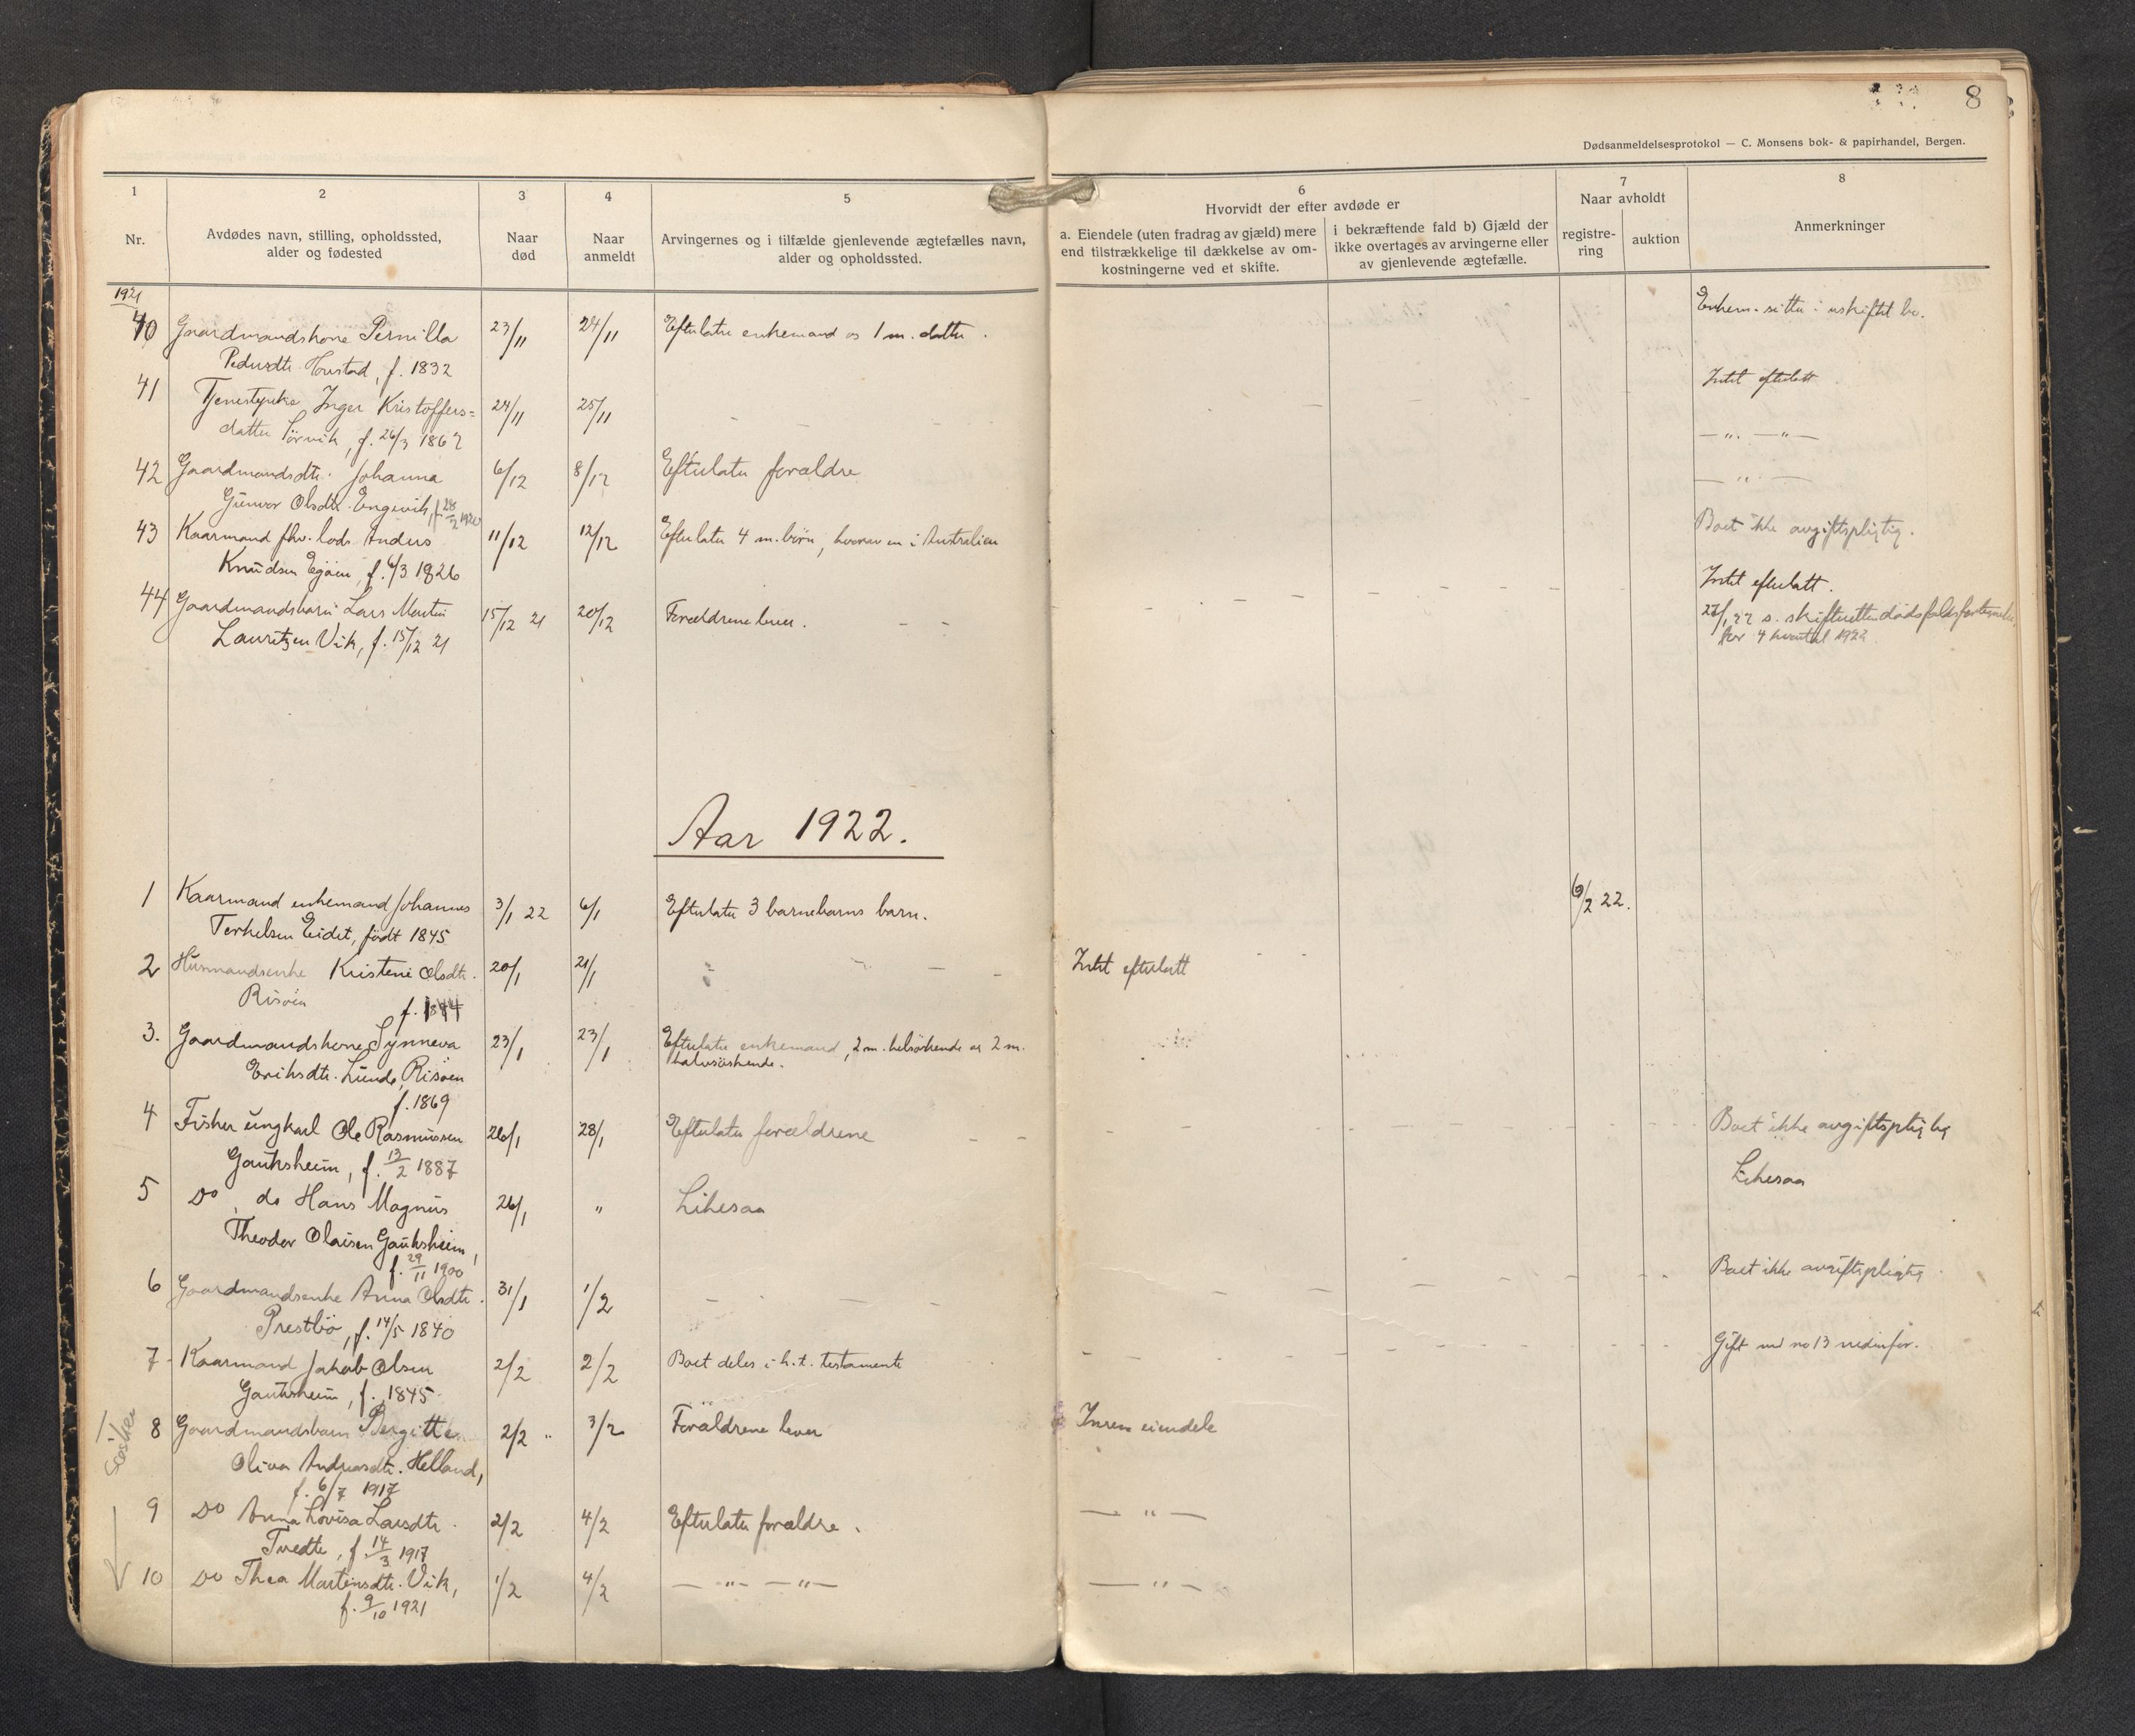 8
Dødsanmeldelsesprotokol — C. Monsens bok- & papirhandel, Bergen.
1
2
3
4
5
6
7
8
Nr.
Avdødes navn, stilling, opholdssted,
alder og fødested
Naar
død
Naar
anmeldt
Arvingernes og i tilfælde gjenlevende ægtefælles navn,
alder og opholdssted.
Hvorvidt der efter avdøde er
a. Eiendele (uten fradrag av gjæld) mere
end tilstrækkelige til dækkelse av om-
kostningerne ved et skifte.
i bekræftende fald b) Gjæld der
ikke overtages av arvingerne eller
av gjenlevende ægtefælle.
Naar avholdt
registre-
ring
auktion
Anmerkninger
1921
40 Gaardmandskone Pernilla 23/11 24/11 Efterlater enkemand og 1 m. datter. Enkem. sitter i uskiftet bo.
Pedersdtr. , f. 1832
41 Tjenestepike Inger Kristoffers= 24/11 25/11 - - - Intet efterlatt
datter Sørvik, f. 26/3 186
— " — " —
42 Gaardmandsdtr. Johanna 6/12 8/12 Efterlater forældre — " —
Gunvor Olsdtr. Engevik, f. 28/2 1920
43 Kaarmand fhv. lods Anders 11/12 12/12 Efterlater 4 m. børn, hvorav en i Australien Boet ikke avgiftspligtig.
Knudsen Egøen, f. 6/3 1826
Intet efterlatt.
44 Gaardmandsbarn Lars Martin 15/12 21 20/12 Forældrene lever. - -
27/1 22 s. skifteretten dødsfaldsfortegnelse
Lauritzen Vik, f. 15/12 21
for 4 kvartal 1922
Aar 1922.
1 Kaarmand enkemand Johannes 3/1 22 6/1 Efterlater 3 barnebarns barn. 6/2 22.
Terkelsen Eidet, født 1845
2 Husmandsenke Kristene Olsdtr. 20/1 21/1 - - Intet efterlatt - -
Risøen
f. 1844
3. Gaardmandskone Synneva 23/1 23/1 Efterlater enkemand, 2 m. helsøskende og 2 m.
halvsøskende.
Eriksdtr. Lunde, Risøen
f. 1869
4 Fisker ungkarl Ole Rasmussen 26/1 28/1 Efterlater forældrene - - Boet ikke avgiftspligtig
Gauksheim, f. 13/2 1887
5 Do, do Hans Magnus 26/1 " Likesaa Likesaa
Theodor Olaisen Gauksheim,
f. 29/11 1900
6 Gaardmandsenke Anna Olsdtr. 31/1 1/2 - - - Boet ikke avgiftspligtig
Prestbø, f. 14/5 1840
7 Kaarmand Jakob Olsen 2/2 2/2 Boet deles i h. t. testamente - - Gift med no 13 nedenfor.
Gauksheim, f. 1845.
8 Gaardmandsbarn Bergitte 2/2 " 3/2 Forældrene lever Ingen eiendele
Oliva Andreasdtr. Helland,
f. 6/7 1917
9 Do Anna Lovisa Larsdtr. 2/2 4/2 Efterlater forældre. — " —
Tvedte, f. 14/3 1917
10 Do Thea Martinsdtr. Vik, 1/2 4/2 — " — " — — " —
f. 9/10 1921